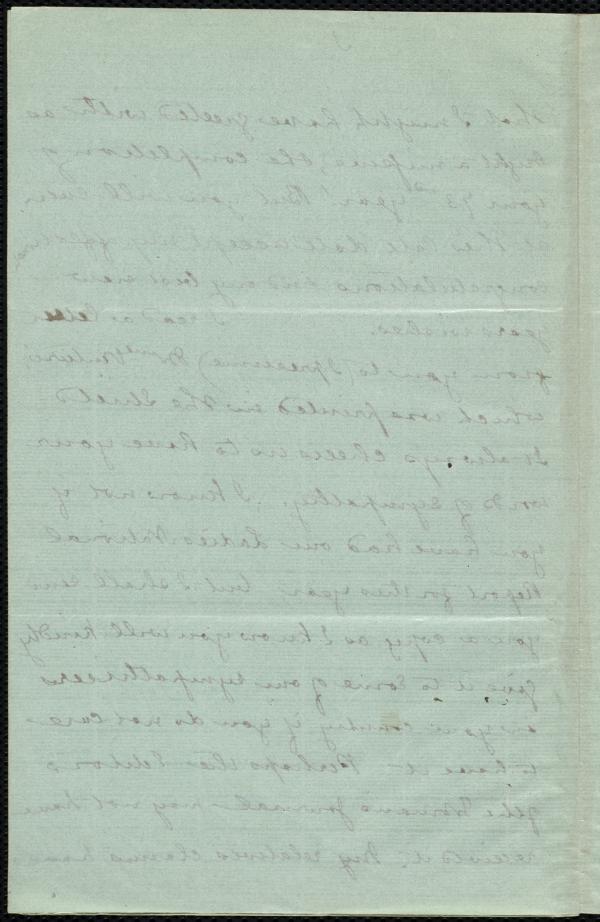 that I might have greeted with as
bright a missive, the completion of
your 73rd year! But you will even
at this late date accept my affectionate
congratulations and my best new
years wishes. I read a letter
from you to (I presume) Mme Venturi,
which was printed in the Shield
It always cheers us to have your
words of sympathy. I know not if
you have had our Ladies National
Report for this year, but I shall send
you a copy as I know you will kindly
give it to some of our sympathizers
in your country if you do not care
to have it - Perhaps the Editors
of the Woman's Journal may not have
received it. My relatives claims have